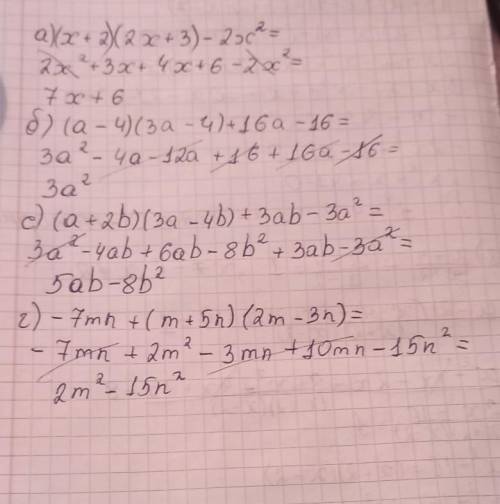 а)(x+2)(2x+3)-2x²=
2x²+3x+4x+6-2x²=
7x+6
б) (a-4)(3a-4)+16a-16=
3a²-4a-12a+16+16a-16=
3a²
с) (a+2b)(3a-4b)+3ab-3a²=
3a²-4ab+6ab-8b²+3ab-3a²=
5ab-8b²
г) -7mn+(m+5n)(2m-3n)=
-7mn+2m²-3mn+10mn-15n²=
2m²-15n²